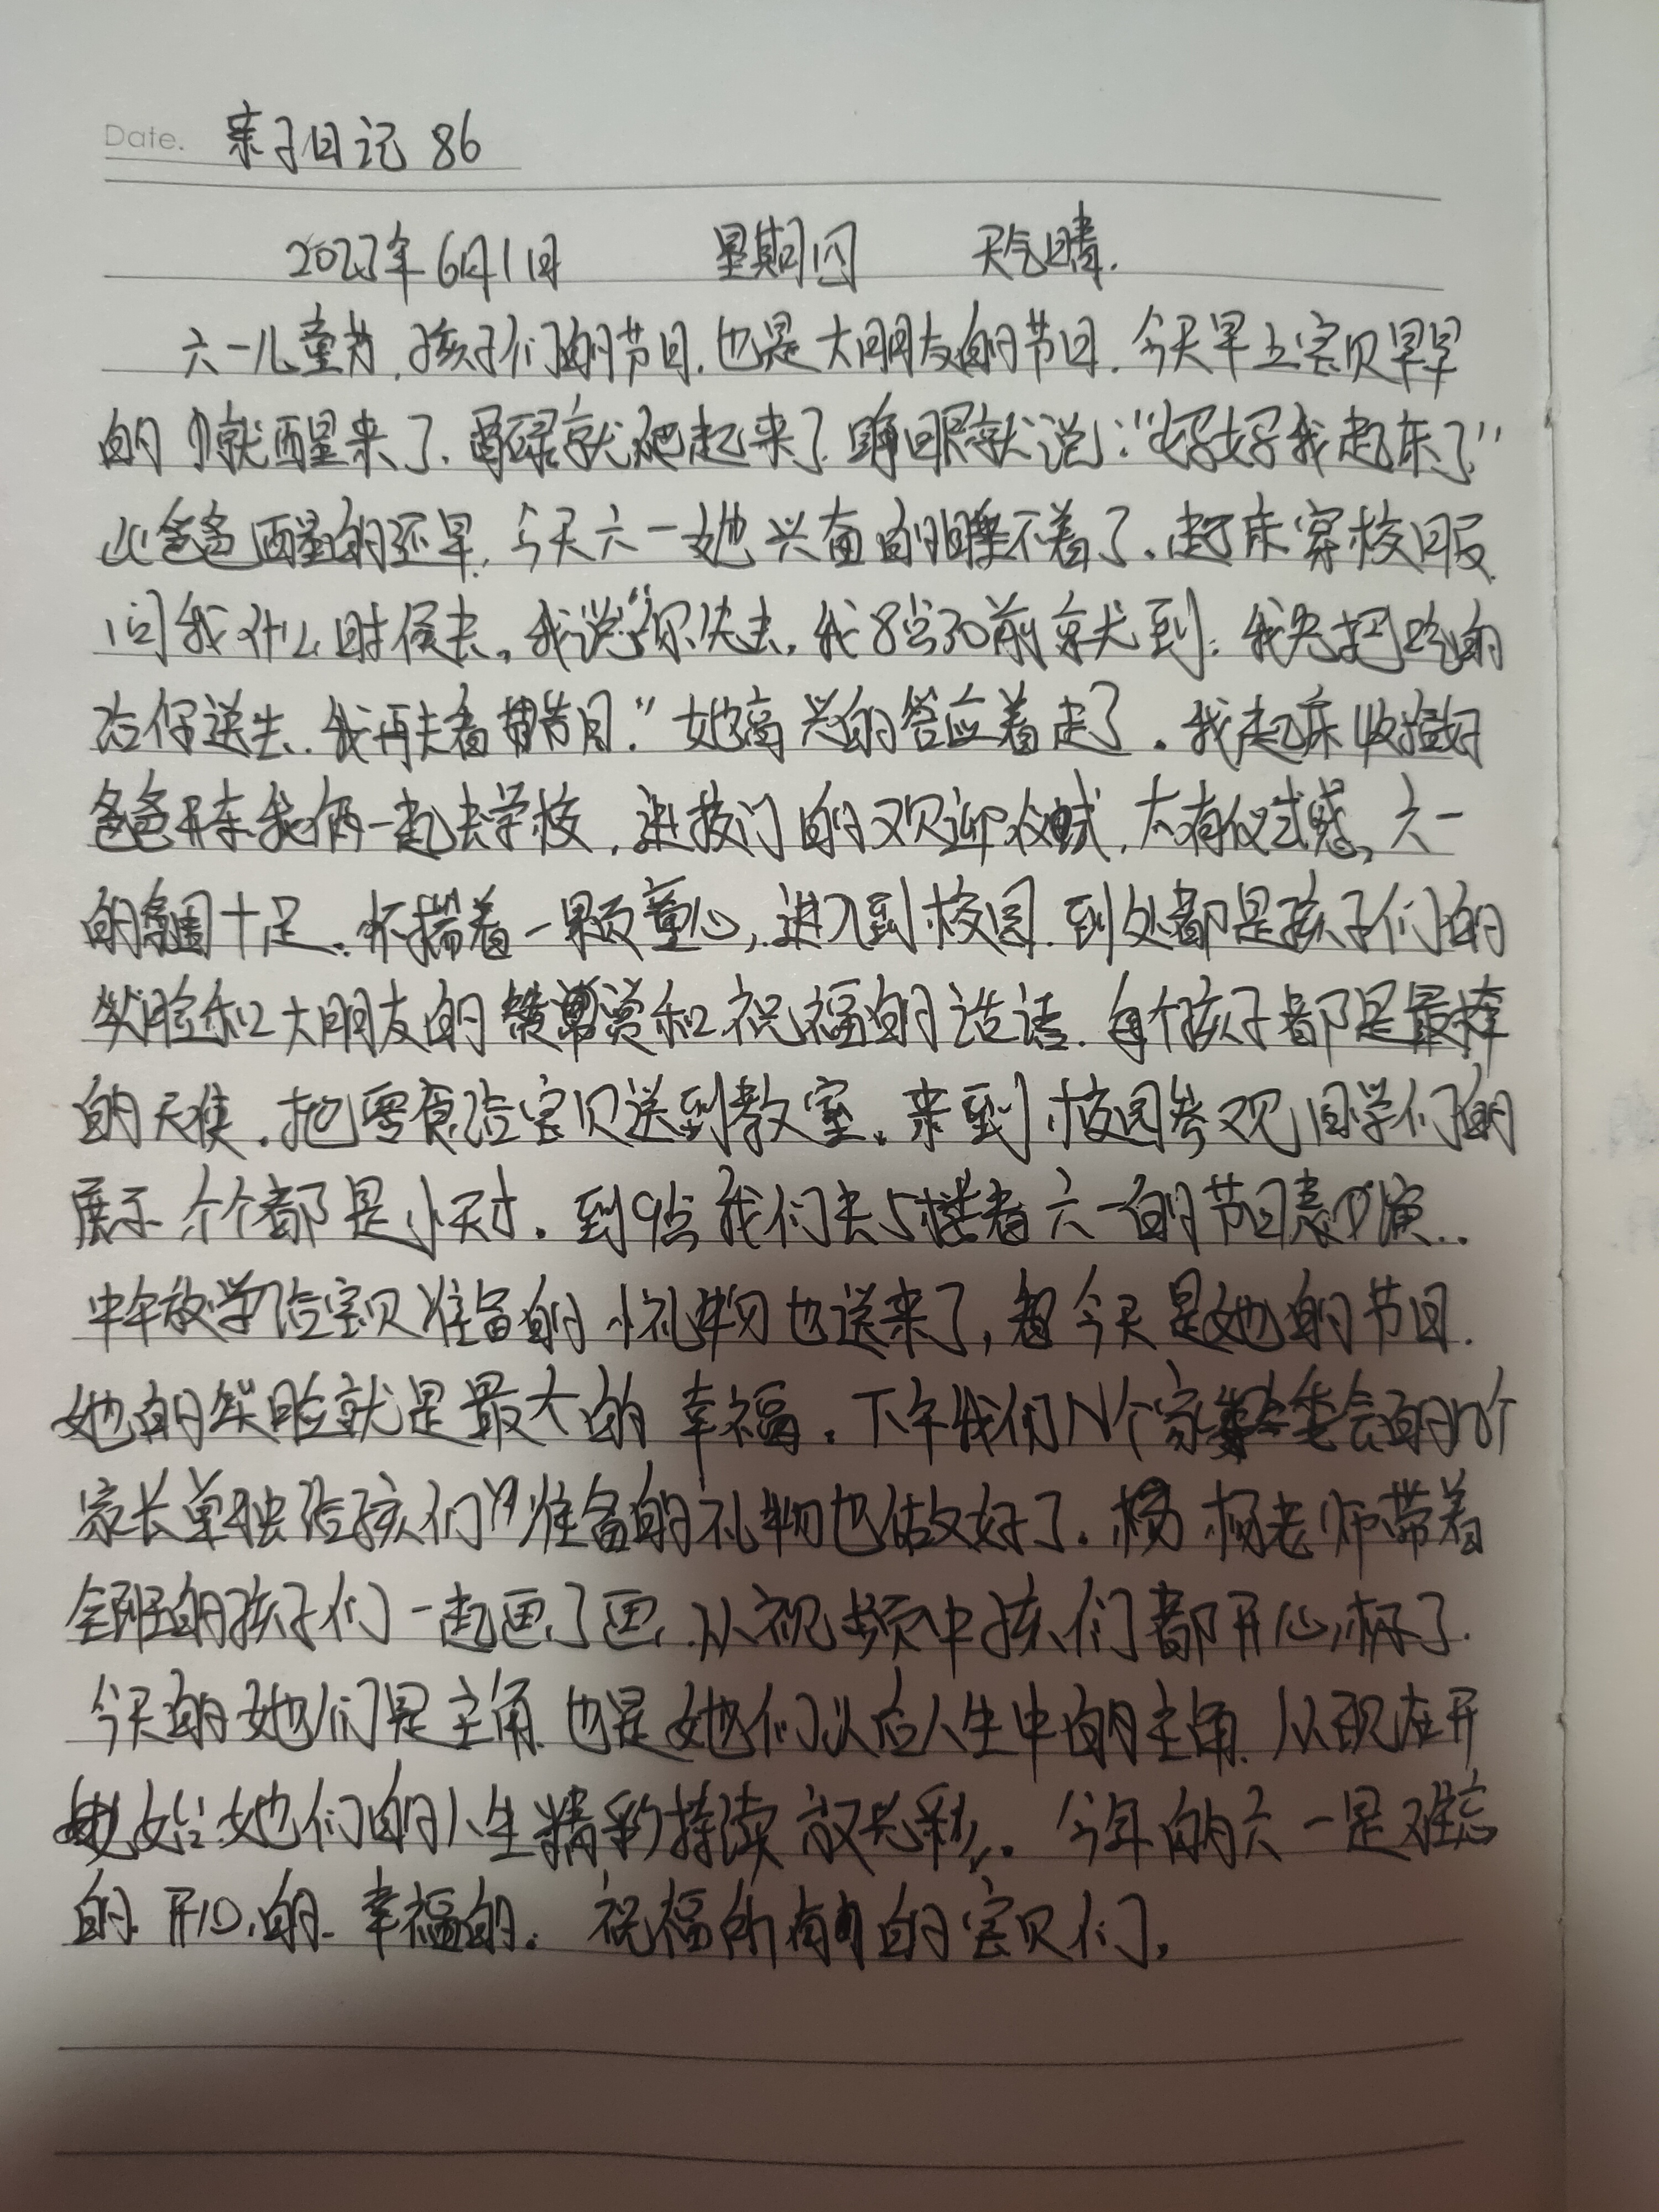 Date. 亲子日记 86
2023年6月1日 星期四 天气晴.
六一儿童节,孩子们的节日.也是大朋友的节日.今天早上宝贝早早
的就醒来了.醒就爬起来了.睁眼就说:"妈妈我起床了"
比爸爸醒的还早,今天六一她兴奋的睡不着了.起床穿校服
问我什么时候去。我说"你先去,我8点30前就到.我先把吃的
给你送去.我再去看节目."她高兴的答应着走了.我起床收拾好
爸爸开车我俩一起去学校,进校门的欢迎仪式,太有仪式感,六一
的氛围十足.怀揣着一颗童心,进入到校园.到处都是孩子们的
笑脸和大朋友的赞赏和祝福的话语.每个孩子都是最棒
的天使.把零食给宝贝送到教室.来到校园参观同学们的
展示个个都是小天才.到9点我们去5楼看六一的节目表演..
中午放学给宝贝准备的小礼物也送来了,今天是她的节日.
她的笑脸就是最大的幸福.下午我们N个家委会的N个
家长单独给孩们准备的礼物也做好了.杨老师带着
全班的孩子们一起画了画,从视频中孩们都开心坏了.
今天的她们是主角也是她们以后人生中的主角.从现在开
始她们的人生精彩持续放光彩.今年的六一是难忘
的.开心的.幸福的.祝福所有的宝贝们,